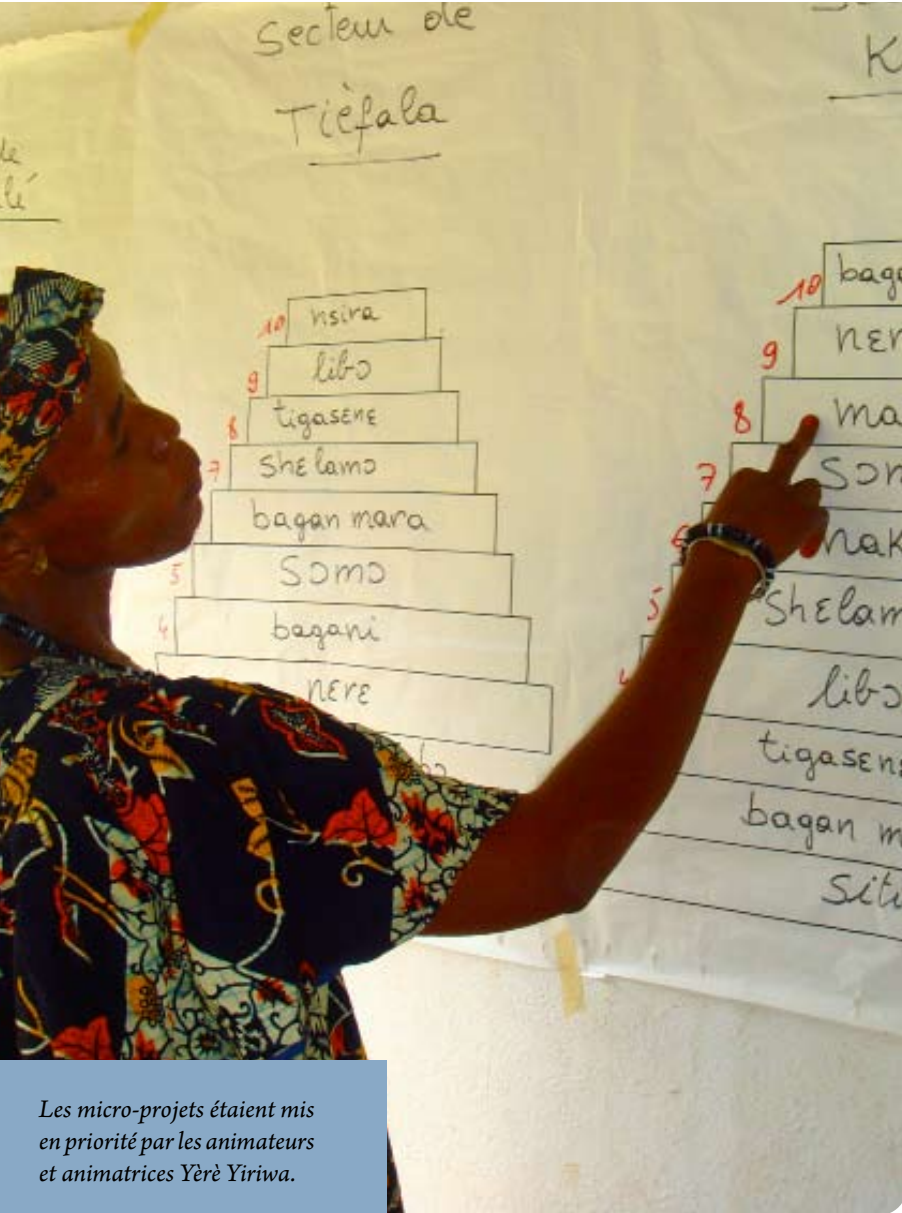 Secteur de
Tièfala
10 nsira
9 libɔ
8 tigasɛnɛ
7 shɛlamɔ
bagan mara
5 sɔmɔ
4 bagani
nɛrɛ
K
10 bag
9 nɛr
8 ma
7 sɔn
6 nak
5 shɛlam
libɔ
tigasɛnɛ
bagan m
Situ
Les micro-projets étaient mis
en priorité par les animateurs
et animatrices Yèrè Yiriwa.